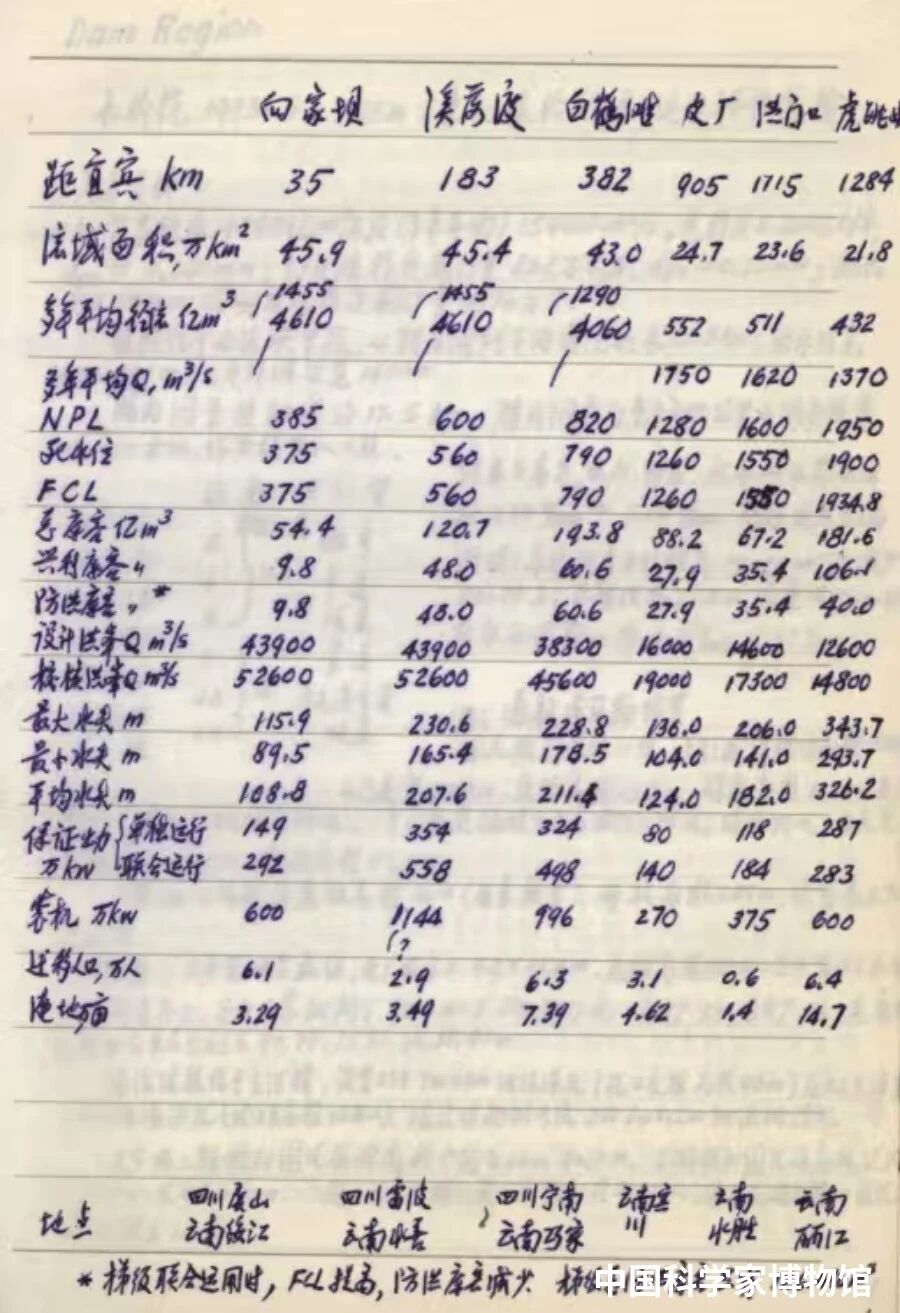 Dam Region
向家坝 溪落渡 白鹤滩 皮厂 洪门口 虎跳
距宜宾 km 35 183 382 905 1715 1284
流域面积,万km² 45.9 45.4 43.0 24.7 23.6 21.8
1455 1455 1290
多年平均径流 亿m³ 4610 4610 4060 552 511 432
多年平均Q, m³/s 1750 1620 1370
NPL 385 600 820 1280 1600 1950
死水位 375 560 790 1260 1550 1900
FCL 375 560 790 1260 1550 1934.8
总库容 亿m³ 54.4 120.7 193.8 88.2 67.2 181.6
兴利库容 〃 9.8 48.0 60.6 27.9 35.4 106.1
防洪库容 〃* 9.8 48.0 60.6 27.9 35.4 40.0
设计洪峯Q m³/s 43900 43900 38300 16000 14600 12600
校核洪峯Q m³/s 52600 52600 45600 19000 17300 14800
最大水头 m 115.9 230.6 228.8 136.0 206.0 343.7
最小水头 m 89.5 165.4 178.5 104.0 141.0 293.7
平均水头 m 108.8 207.6 211.4 124.0 182.0 326.2
保证出力 单独运行 149 354 324 80 118 287
万kw 联合运行 292 558 498 140 184 283
装机 万kw 600 1144 996 270 375 600
(?
迁移人口,万人 6.1 2.9 6.3 3.1 0.6 6.4
淹地万亩 3.29 3.49 7.39 4.62 1.4 14.7
四川屏山 四川雷波 四川宁南 云南宾 云南 云南
地点 云南绥江 云南永善 云南巧家 川 永胜 丽江
* 梯级联合运用时, FCL提高, 防洪库容减少
中国科学家博物馆